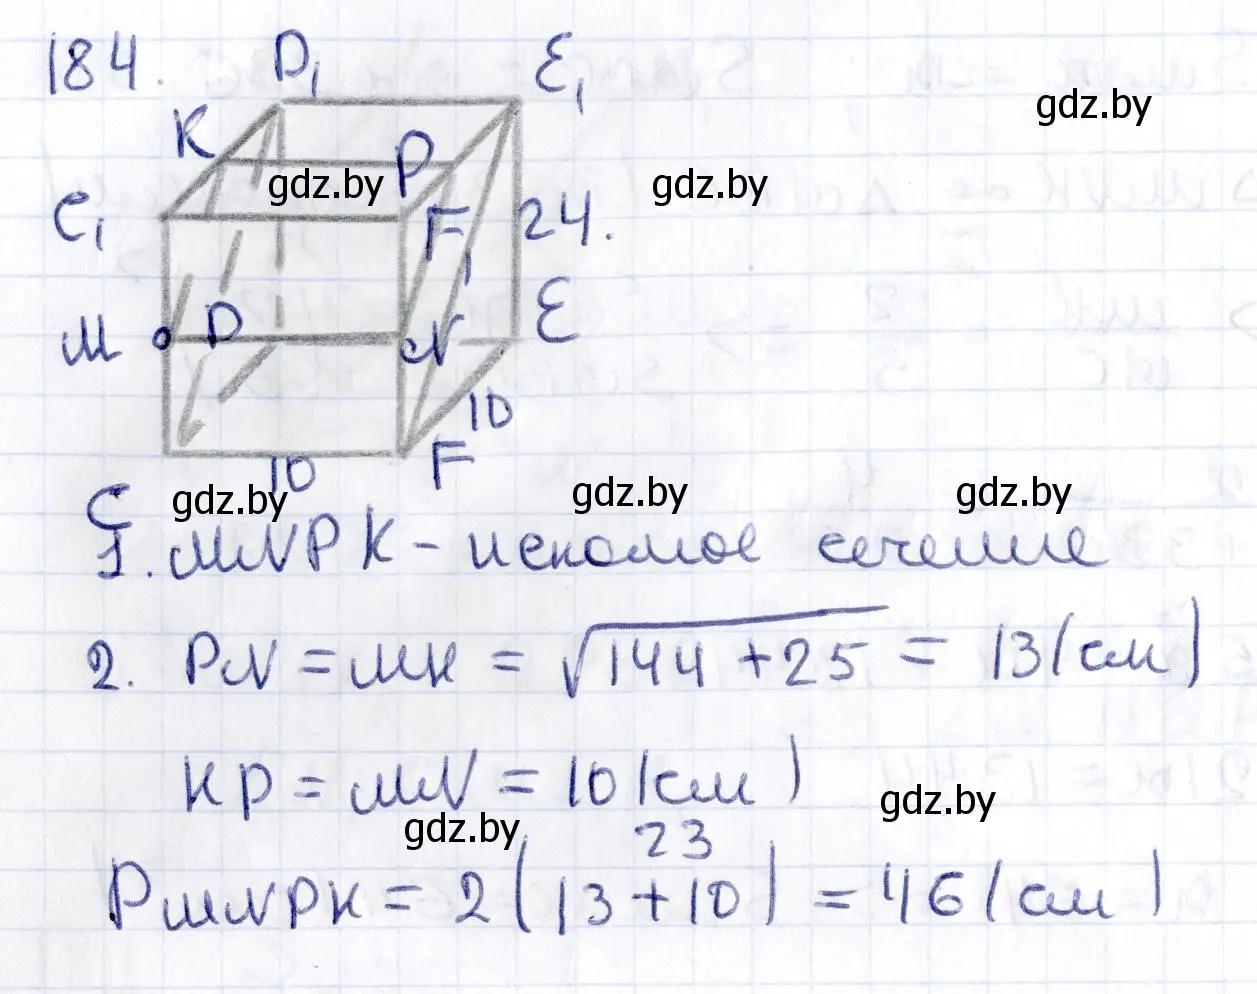 184.
D₁
E₁
gdz.by
K
P
gdz.by
gdz.by
C₁
F₁
24.
M
D
N
E
10
F
10
C
gdz.by
gdz.by
gdz.by
1. MNPK - искомое сечение
2. PN = MK = √144 + 25 = 13 (см)
KP = MN = 10 (см)
gdz.by
gdz.by
23
PMNPK = 2 (13 + 10) = 46 (см)